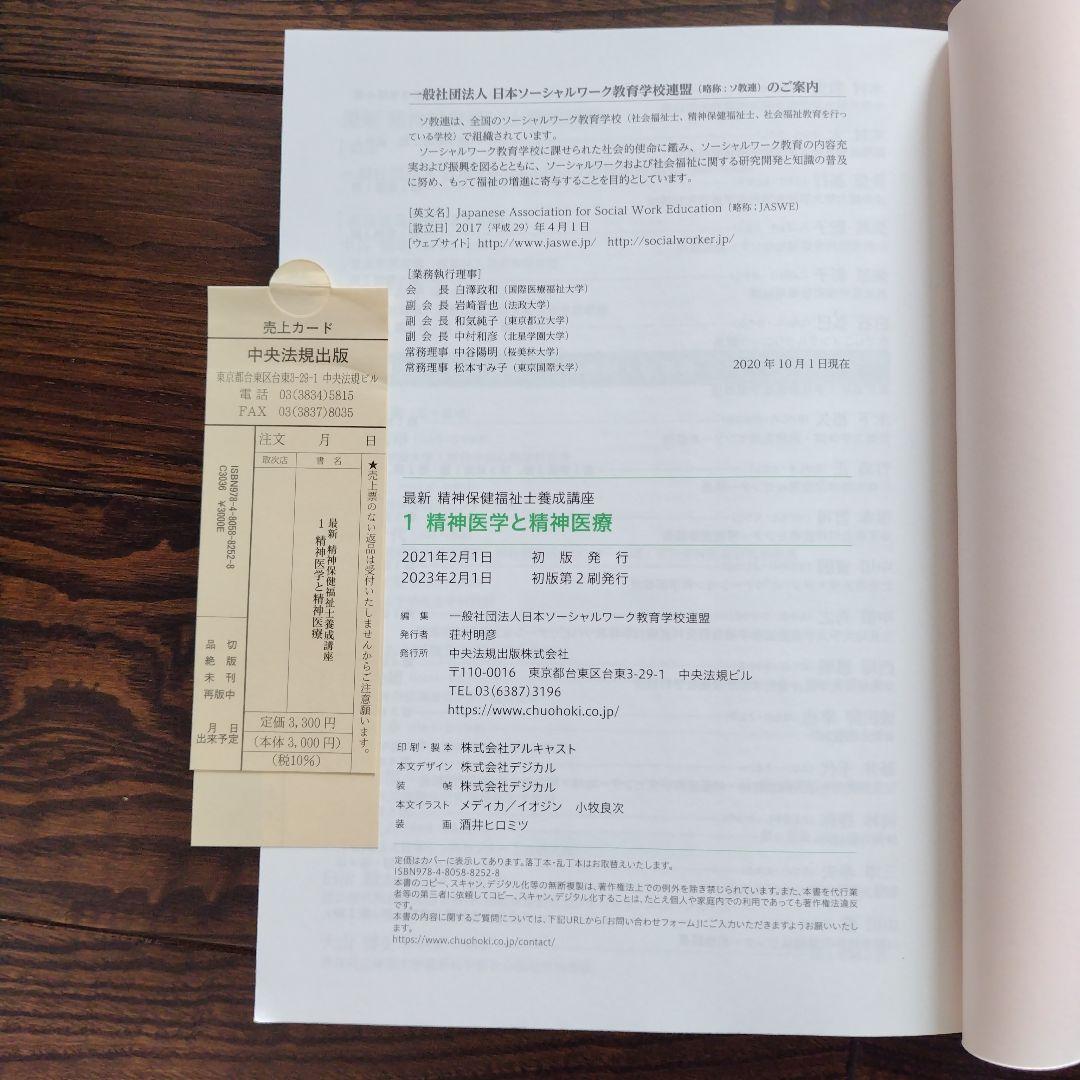 一般社団法人 日本ソーシャルワーク教育学校連盟（略称：ソ教連）のご案内
ソ教連は、全国のソーシャルワーク教育学校（社会福祉士、精神保健福祉士、社会福祉教育を行っ
ている学校）で組織されています。
ソーシャルワーク教育学校に課せられた社会的使命に鑑み、ソーシャルワーク教育の内容充
実および振興を図るとともに、ソーシャルワークおよび社会福祉に関する研究開発と知識の普及
に努め、もって福祉の増進に寄与することを目的としています。
［英文名］Japanese Association for Social Work Education（略称：JASWE）
［設立日］2017（平成29）年4月1日
［ウェブサイト］http://www.jaswe.jp/　http://socialworker.jp/
［業務執行理事］
会　　長 白澤政和（国際医療福祉大学）
副 会 長 岩崎晋也（法政大学）
副 会 長 和気純子（東京都立大学）
副 会 長 中村和彦（北星学園大学）
常務理事 中谷陽明（桜美林大学）
常務理事 松本すみ子（東京国際大学）
2020年10月1日現在
最新 精神保健福祉士養成講座
1 精神医学と精神医療
2021年2月1日　初 版 発 行
2023年2月1日　初版第2刷発行
編　集　一般社団法人日本ソーシャルワーク教育学校連盟
発行者　荘村明彦
発行所　中央法規出版株式会社
〒110-0016　東京都台東区台東3-29-1　中央法規ビル
TEL 03(6387)3196
https://www.chuohoki.co.jp/
印刷・製本　株式会社アルキャスト
本文デザイン　株式会社デジカル
装　　幀　株式会社デジカル
本文イラスト　メディカ／イオジン　小牧良次
装　　画　酒井ヒロミツ
定価はカバーに表示してあります。落丁本・乱丁本はお取替えいたします。
ISBN978-4-8058-8252-8
本書のコピー、スキャン、デジタル化等の無断複製は、著作権法上での例外を除き禁じられています。また、本書を代行業
者等の第三者に依頼してコピー、スキャン、デジタル化することは、たとえ個人や家庭内での利用であっても著作権法違反
です。
本書の内容に関するご質問については、下記URLから「お問い合わせフォーム」にご入力いただきますようお願いいたし
ます。
https://www.chuohoki.co.jp/contact/
売上カード
中央法規出版
東京都台東区台東3-29-1 中央法規ビル
電話　03(3834)5815
FAX　03(3837)8035
注文　月　日
取次店　書 名
★売上票のない返品は受付いたしませんからご注意願います。
最新 精神保健福祉士養成講座
1 精神医学と精神医療
ISBN978-4-8058-8252-8
C3036 ¥3000E
品　切
絶　版
未　刊
再版中
月　日
出来予定
定価3,300円
(本体3,000円)
(税10％)